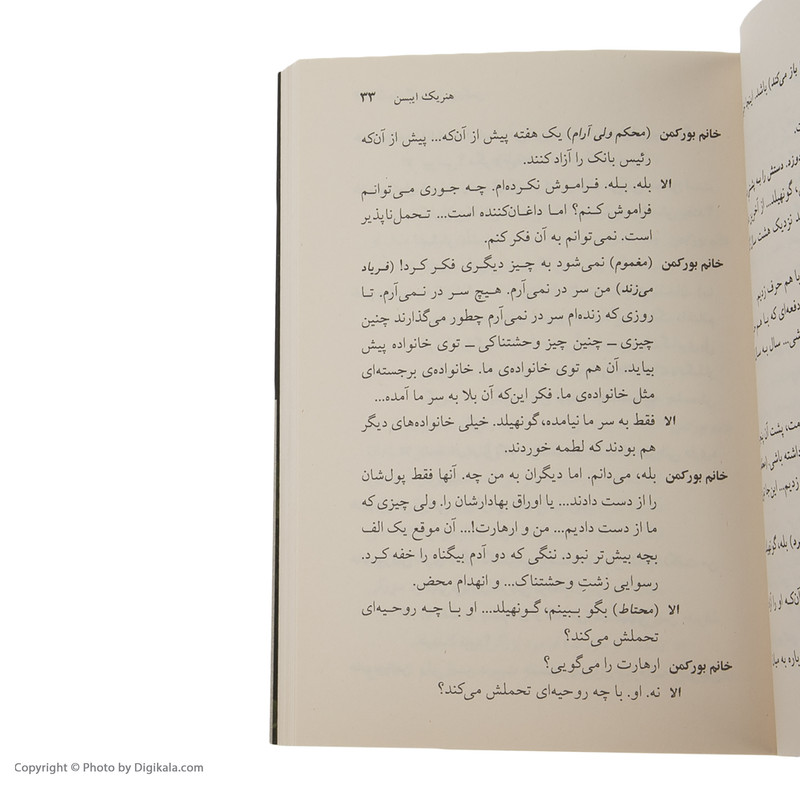 هنریک ایبسن ۳۳
خانم بورکمن (محکم ولی آرام) یک هفته پیش از آن‌که... پیش از آن‌که
رئیس بانک را آزاد کنند.
الا بله. بله. فراموش نکرده‌ام. چه جوری می‌توانم
فراموش کنم؟ اما داغان‌کننده است... تحمل‌ناپذیر
است. نمی‌توانم به آن فکر کنم.
خانم بورکمن (مغموم) نمی‌شود به چیز دیگری فکر کرد! (فریاد
می‌زند) من سر در نمی‌آرم. هیچ سر در نمی‌آرم. تا
روزی که زنده‌ام سر در نمی‌آرم چطور می‌گذارند چنین
چیزی ــ چنین چیز وحشتناکی ــ توی خانواده پیش
بیاید. آن هم توی خانواده‌ی ما. خانواده‌ی برجسته‌ای
مثل خانواده‌ی ما. فکر این‌که آن بلا به سر ما آمده...
الا فقط به سر ما نیامده، گونهیلد. خیلی خانواده‌های دیگر
هم بودند که لطمه خوردند.
خانم بورکمن بله، می‌دانم. اما دیگران به من چه. آنها فقط پول‌شان
را از دست دادند... یا اوراق بهادارشان را. ولی چیزی که
ما از دست دادیم... من و ارهارت!... آن موقع یک الف
بچه بیش‌تر نبود. ننگی که دو آدم بیگناه را خفه کرد.
رسوایی زشتِ وحشتناک... و انهدام محض.
الا (محتاط) بگو ببینم، گونهیلد... او با چه روحیه‌ای
تحملش می‌کند؟
خانم بورکمن ارهارت را می‌گویی؟
الا نه. او. با چه روحیه‌ای تحملش می‌کند؟
باز می‌کند) باشد. اینجا
دوزه. دستش را به
گونهیلد... از آخرین
نزدیک هشت سال
با هم حرف زدیم
دفعه‌ای که با هم
سال به سال
پشت آن
داشته باشی
زدیم... این‌جا
بله، گونهیلد
آن‌که او را
باره به
Copyright © Photo by Digikala.com